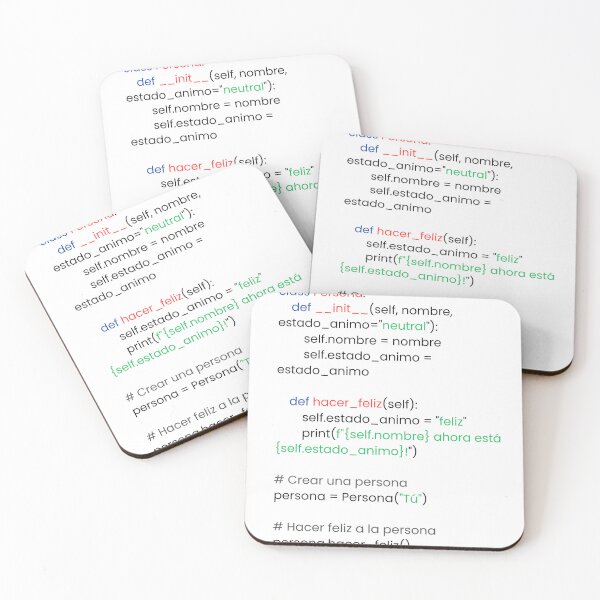 class Persona:
def __init__(self, nombre,
estado_animo="neutral"):
self.nombre = nombre
self.estado_animo =
estado_animo
def hacer_feliz(self):
self.estado_animo = "feliz"
class Persona:
def __init__(self, nombre,
estado_animo="neutral"):
self.nombre = nombre
self.estado_animo =
estado_animo
def hacer_feliz(self):
self.estado_animo = "feliz"
print(f"{self.nombre} ahora está
{self.estado_animo}!")
class Persona:
def __init__(self, nombre,
estado_animo="neutral"):
self.nombre = nombre
self.estado_animo =
estado_animo
def hacer_feliz(self):
self.estado_animo = "feliz"
print(f"{self.nombre} ahora está
{self.estado_animo}!")
# Crear una persona
persona = Persona("T
# Hacer feliz a la p
class Persona:
def __init__(self, nombre,
estado_animo="neutral"):
self.nombre = nombre
self.estado_animo =
estado_animo
def hacer_feliz(self):
self.estado_animo = "feliz"
print(f"{self.nombre} ahora está
{self.estado_animo}!")
# Crear una persona
persona = Persona("Tú")
# Hacer feliz a la persona
persona.hacer_feliz()